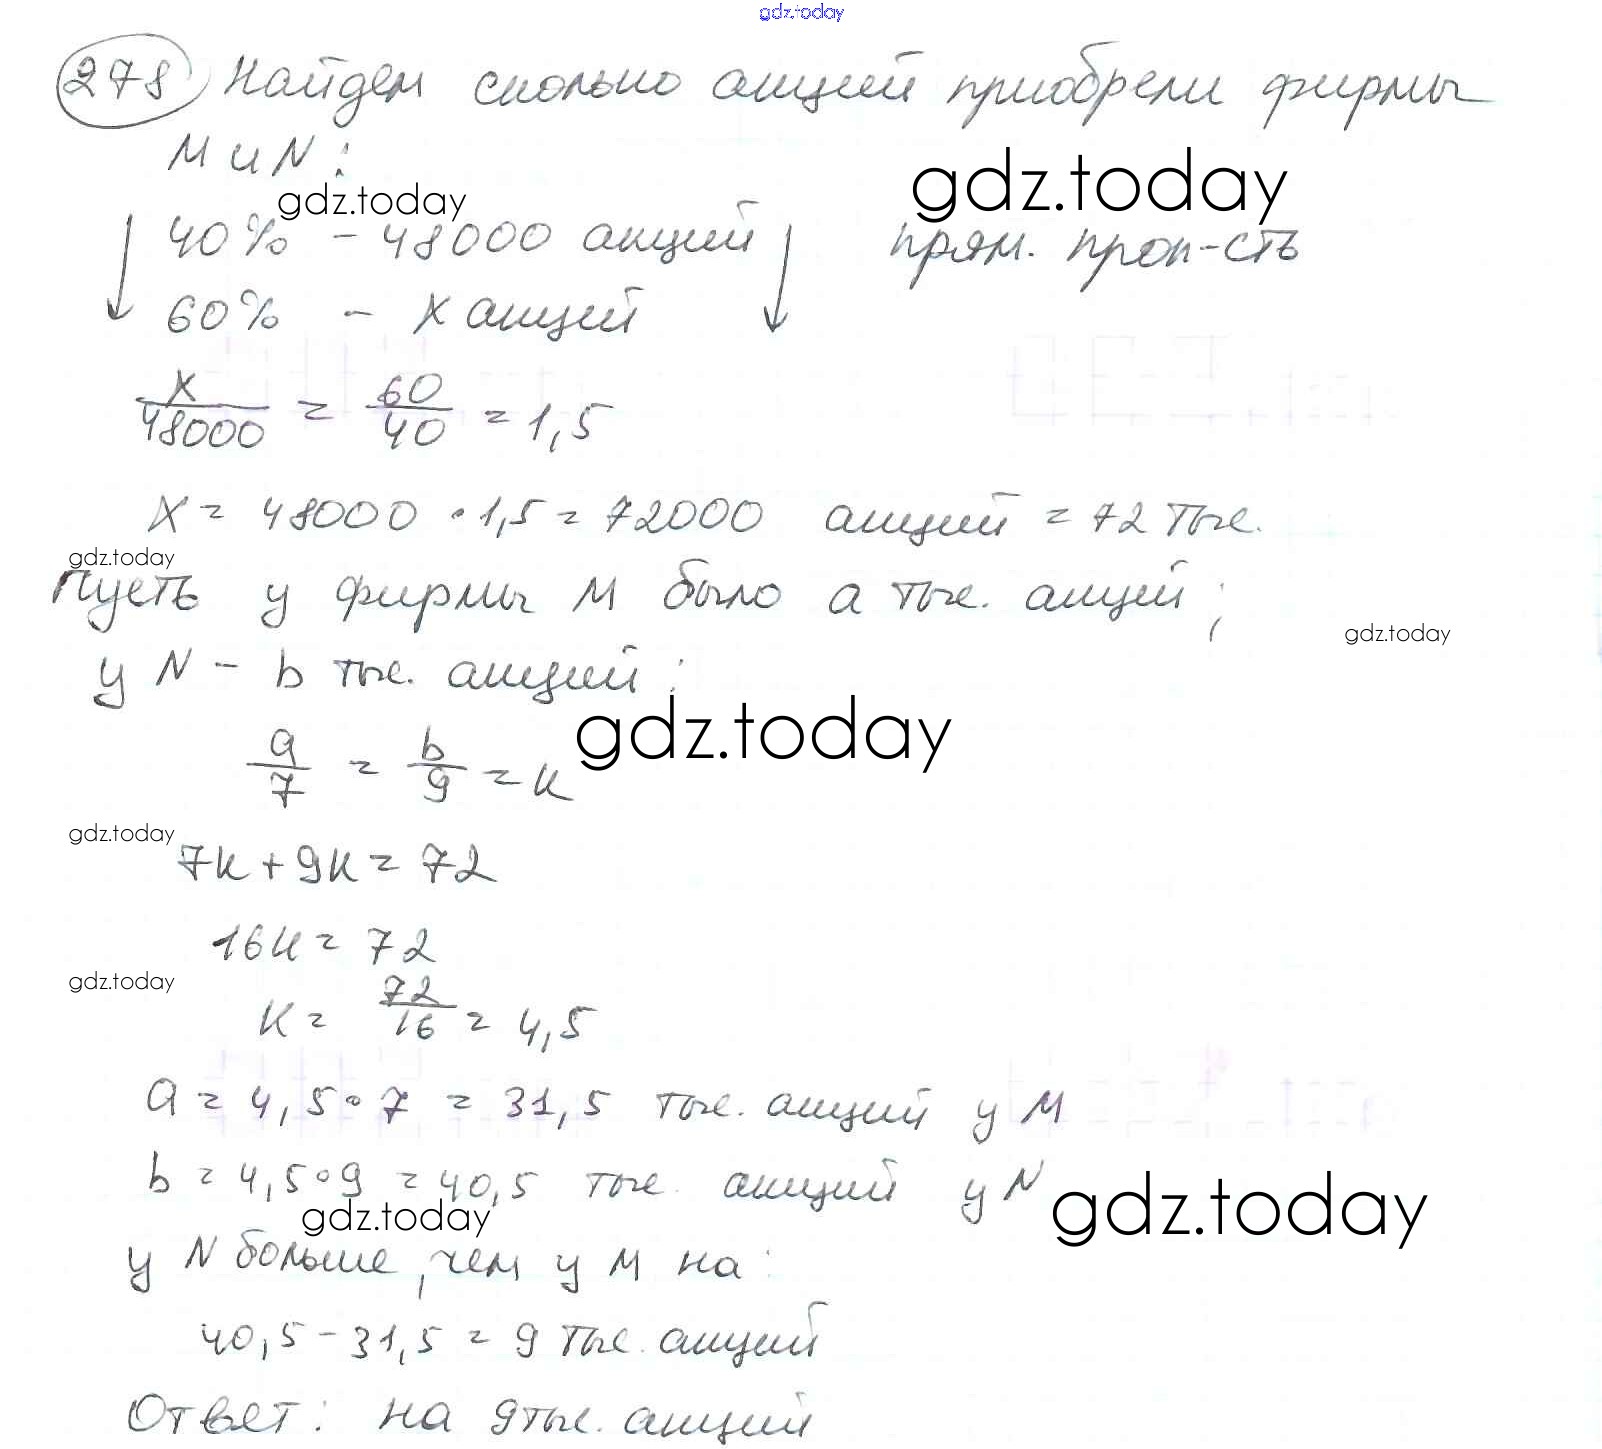 gdz.today
278 Найдем сколько акций приобрели фирмы
М и N:
gdz.today
gdz.today
40% - 48000 акций прям. проп-сть
60% - x акций
x/48000 = 60/40 = 1,5
x = 48000 · 1,5 = 72000 акций = 72 тыс.
gdz.today
Пусть у фирмы М было a тыс. акций;
gdz.today
у N - b тыс. акций:
gdz.today
a/7 = b/9 = k
gdz.today
7k + 9k = 72
16k = 72
gdz.today
k = 72/16 = 4,5
a = 4,5 · 7 = 31,5 тыс. акций у М
b = 4,5 · 9 = 40,5 тыс. акций у N
gdz.today
gdz.today
у N больше, чем у М на:
40,5 - 31,5 = 9 тыс. акций
Ответ: на 9 тыс. акций